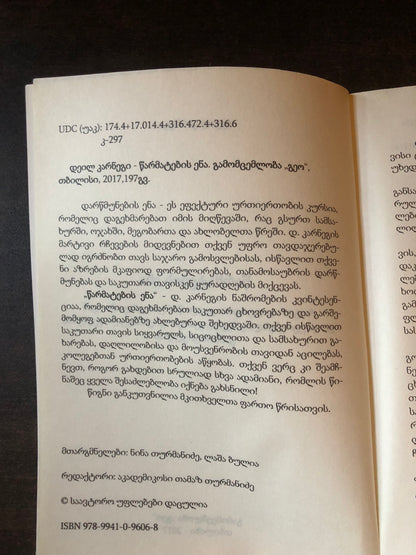 UDC (უაკ): 174.4+17.014.4+316.472.4+316.6
კ-297
დეილ კარნეგი - წარმატების ენა. გამომცემლობა „გეო“,
თბილისი, 2017,197გვ.
დარწმუნების ენა - ეს ეფექტური ურთიერთობის კურსია,
რომელიც დაგეხმარებათ იმის მიღწევაში, რაც გსურთ სამსა-
ხურში, ოჯახში, მეგობართა და ახლობელთა წრეში. დ. კარნეგის
მარტივი რჩევების მიდევნებით თქვენ უფრო თავდაჯერებუ-
ლად იგრძნობთ თავს საჯარო გამოსვლებისას, ისწავლით თქვე-
ნი აზრების მკაფიოდ ფორმულირებას, თანამოსაუბრის დარწ-
მუნებას და საკუთარი თავისკენ ყურადღების მიქცევას.
„წარმატების ენა“ - დ. კარნეგის ნაშრომების კვინტესენ-
ციაა, რომელიც დაგეხმარებათ საკუთარ ცხოვრებაზე და გარე-
მომყოფ ადამიანებზე ახლებურად შეხედვაში. თქვენ ისწავლით
საკუთარი თავის სიყვარულს, სიცოცხლითა და სამსახურით გა-
ხარებას, დაღლილობისა და მოუსვენრობის თავიდან აცილებას,
კოლეგებთან ურთიერთობების აწყობას. თქვენ ვერც კი შეამჩ-
ნევთ, როგორ გახდებით სრულიად სხვა ადამიანი, რომლის წი-
ნაშეც ყველა შესაძლებლობა იქნება გახსნილი!
წიგნი განკუთვნილია მკითხველთა ფართო წრისათვის.
მთარგმნელები: ნინა თურმანიძე, ლაშა ბულია
რედაქტორი: აკადემიკოსი თამაზ თურმანიძე
© საავტორო უფლებები დაცულია
ISBN 978-9941-0-9606-8